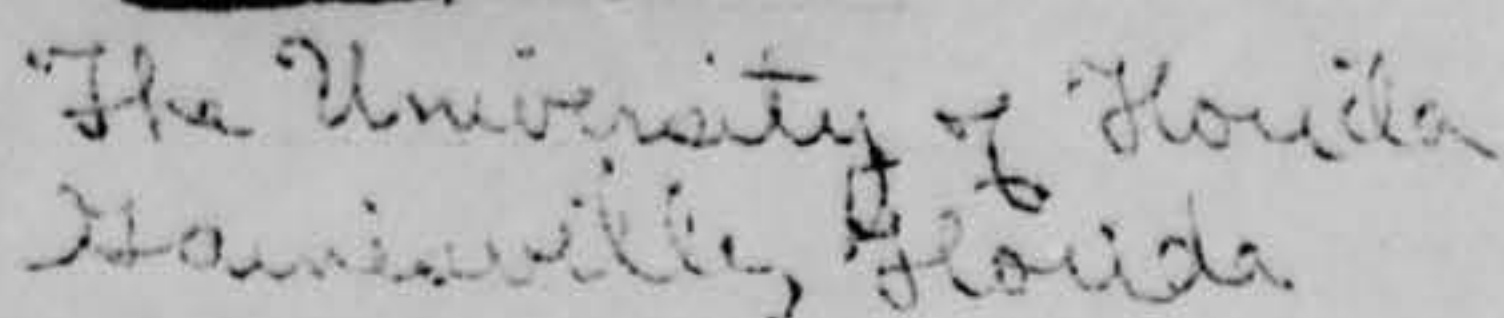 The University of Florida
Gainesville, Florida